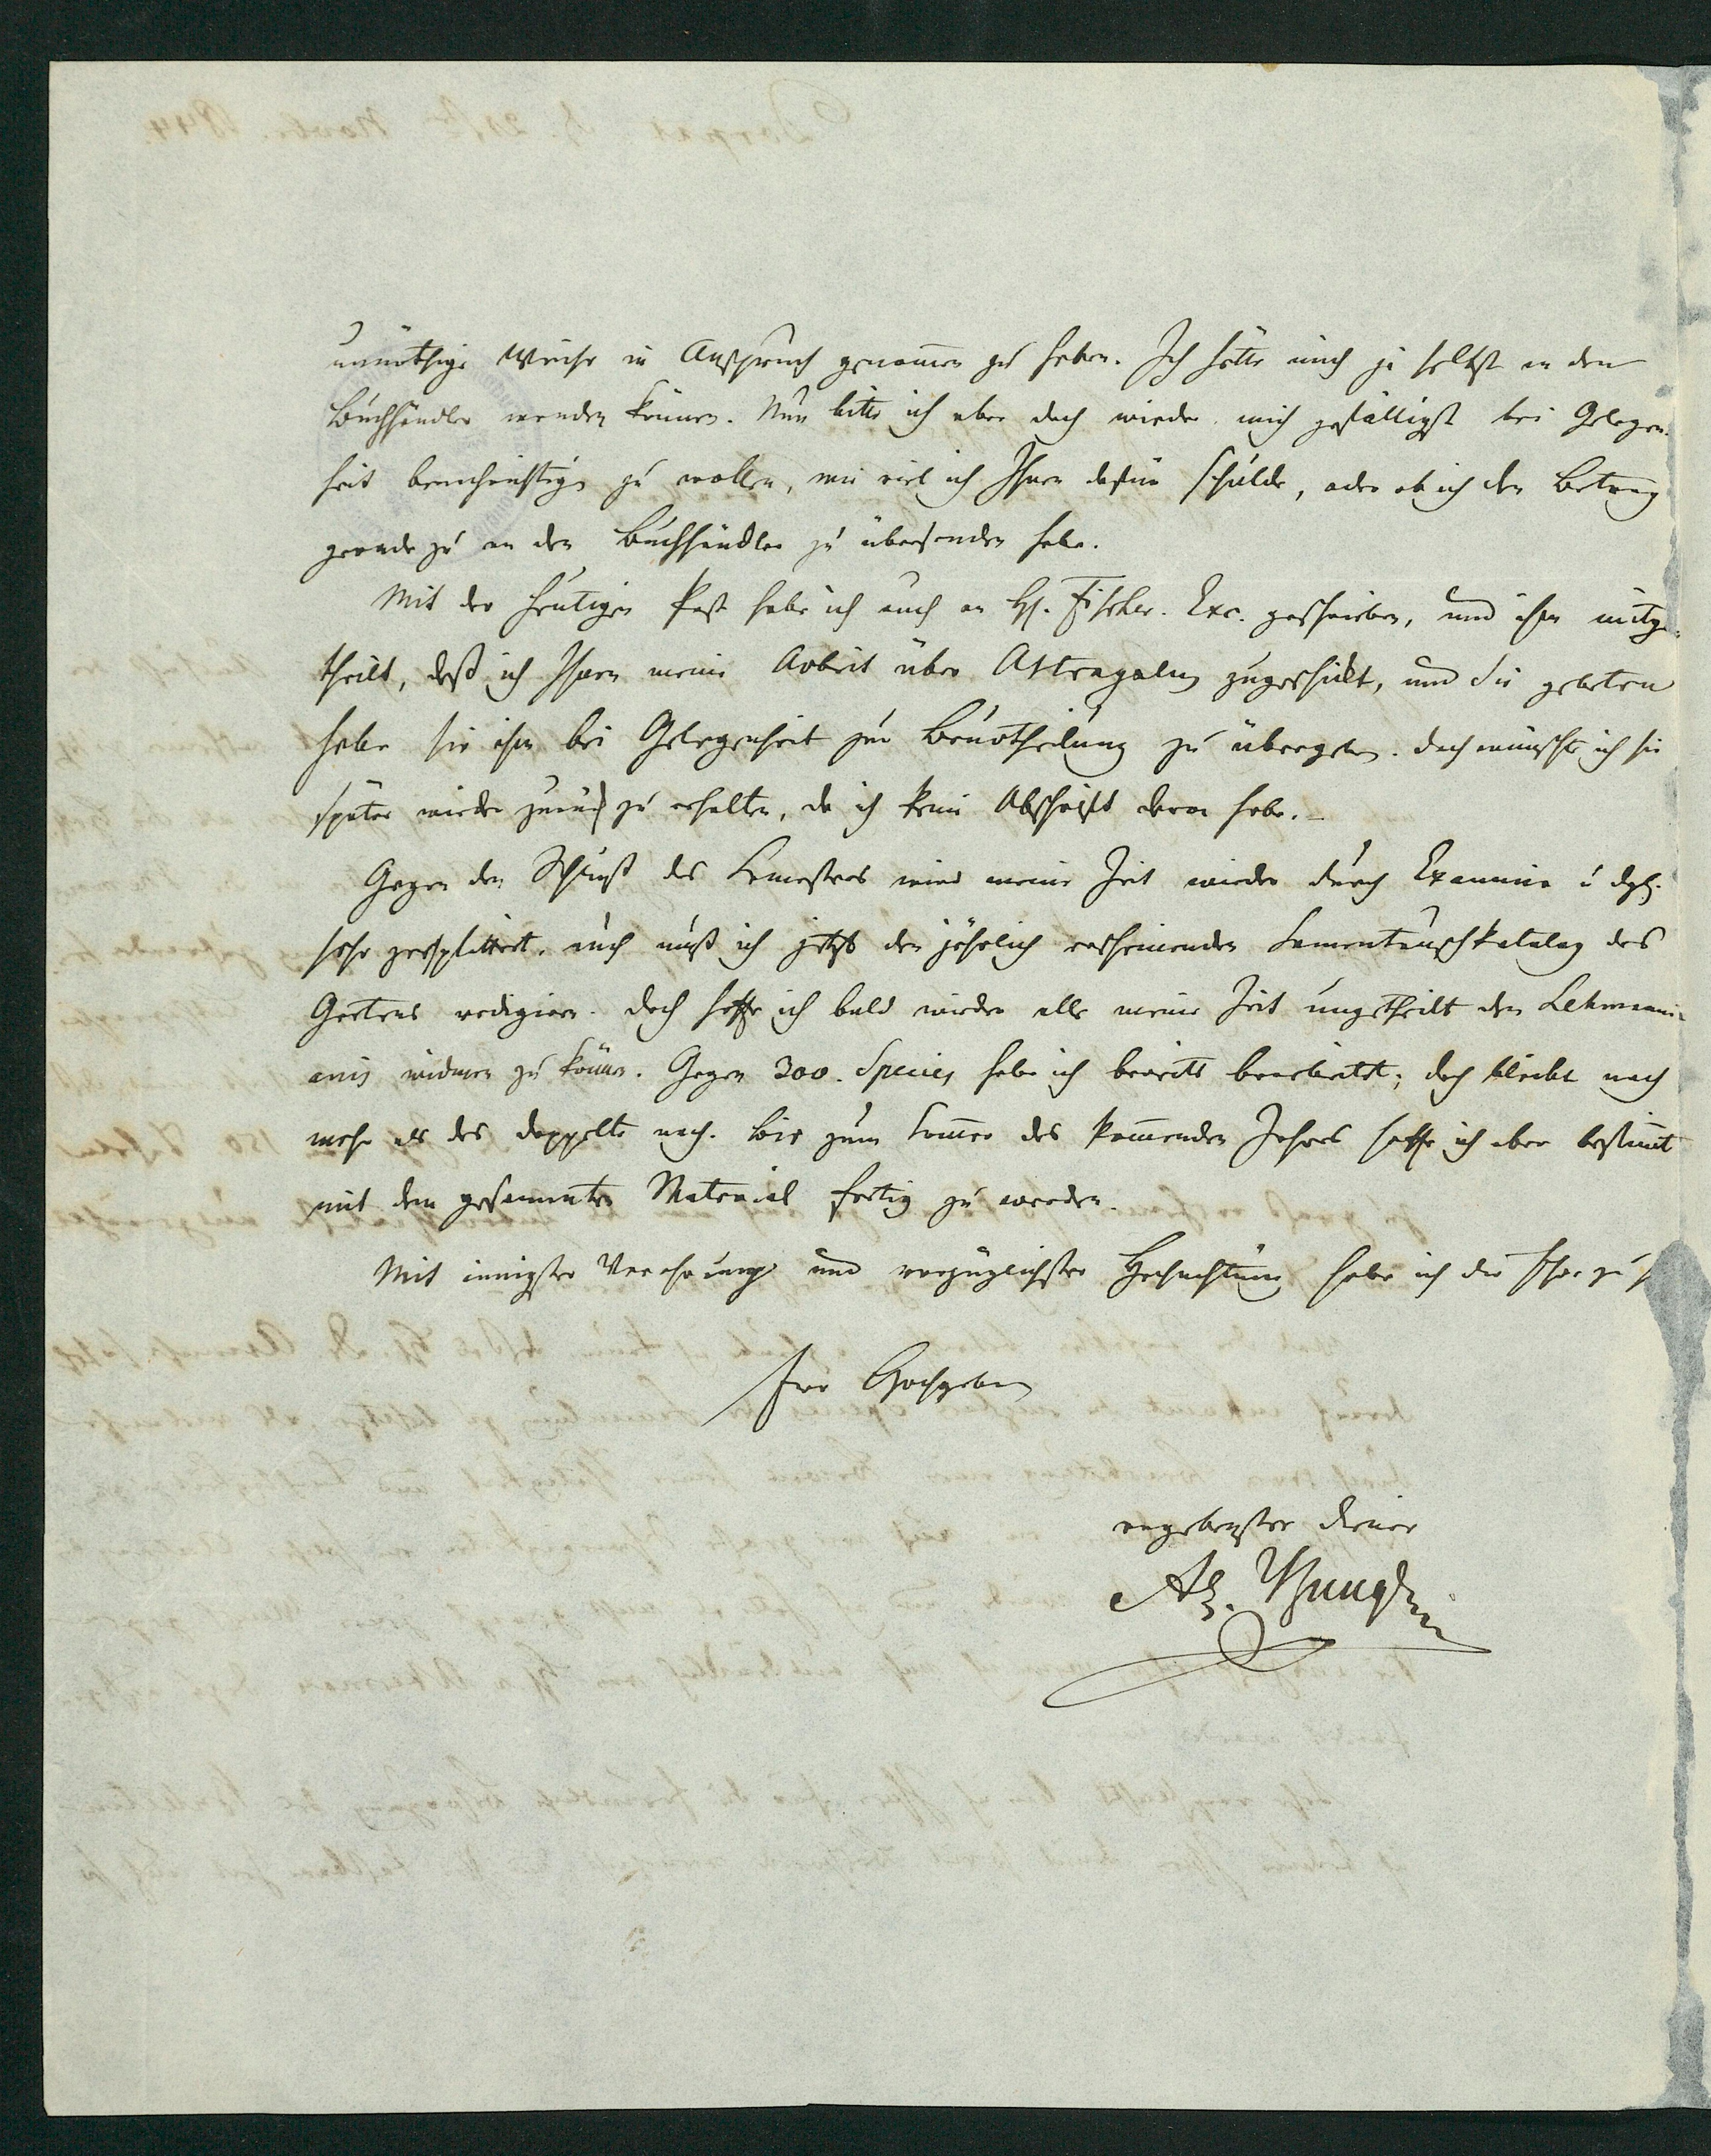 unnöthige Weise in Anspruch genommen zu haben. Ich hätte mich ja selbst an den
Buchhändler wenden können. Nun bitte ich aber doch wieder mich gefälligst bei Gelegen-
heit benachrichtigen zu wollen, wie viel ich Ihnen dafür schulde, oder ob ich den Betrag
gerade zu an den Buchhändler zu übersenden habe.
Mit der heutigen Post habe ich auch an H. Fischer. Exc. geschrieben, und ihm mitge-
theilt, daß ich Ihnen meine Arbeit über Astragalus zugeschickt, und Sie gebeten
habe sie ihm bei Gelegenheit zur Beurtheilung zu übergeben. Doch wünschte ich sie
später wieder zurück zu erhalten, da ich keine Abschrift davon habe. –
Gegen den Schluß des Semesters wird meine Zeit wieder durch Examina u dgl.
sehr zersplittert, auch muß ich jetzt den jährlich erscheinenden Samentauschkatalog des
Gartens redigiren. Doch hoffe ich bald wieder alle meine Zeit ungetheilt den Lehmanni-
anis widmen zu können. Gegen 300. Species habe ich bereits bearbeitet; doch bleibt noch
mehr als das doppelte nach. Bis zum Sommer des kommenden Jahres hoffe ich aber bestimmt
mit dem gesammten Material fertig zu werden.
Mit innigster Verehrung und vorzüglichster Hochachtung habe ich die Ehre zu
Ew Hochgeboren
ergebenster Diener
Al. Bunge